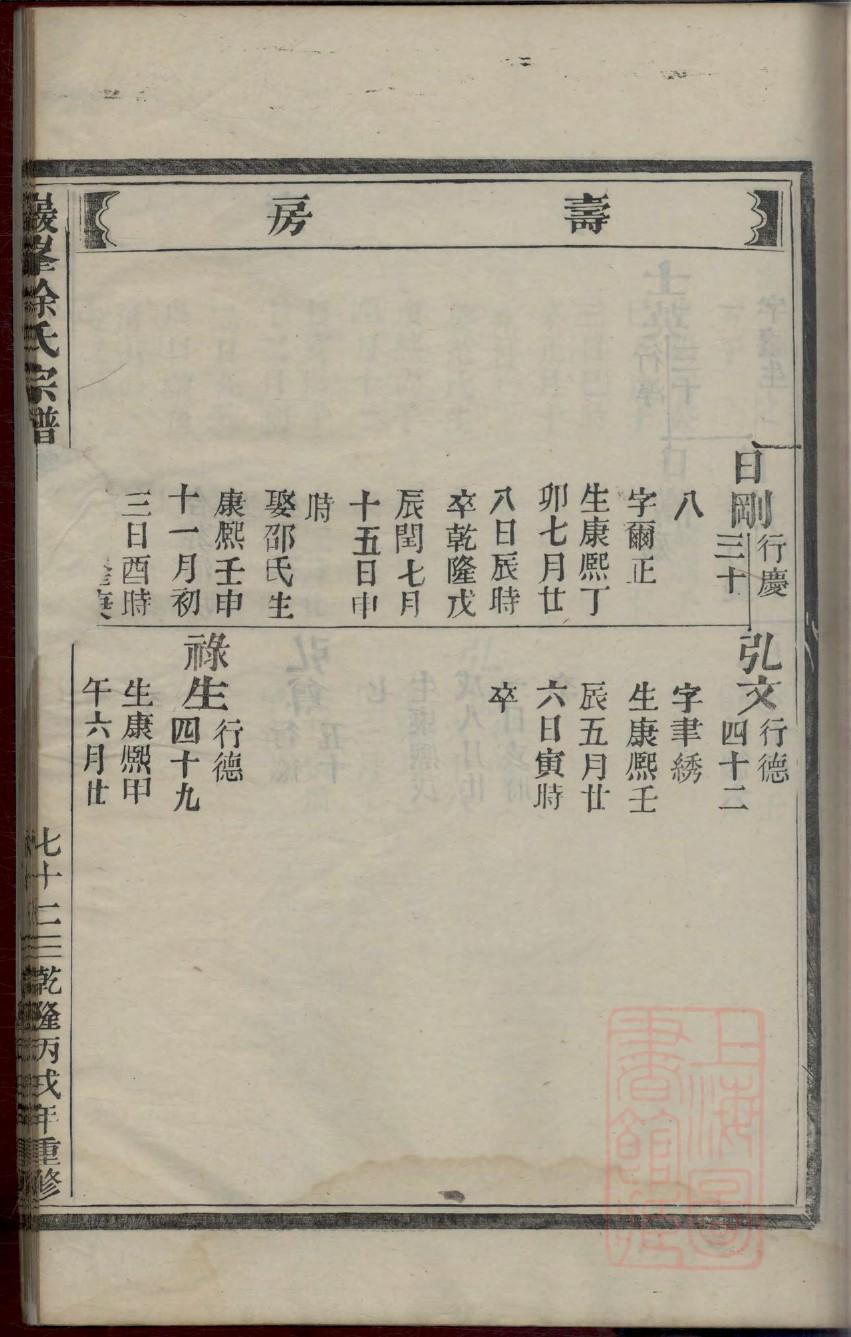 壽房
日剛行慶三十
八
字爾正
生康熙丁
卯七月廿
八日辰時
卒乾隆戊
辰閏七月
十五日申
時
娶邵氏生
康熙壬申
十一月初
三日酉時
弘文行德四十二
字聿綉
生康熙壬
辰五月廿
六日寅時
卒
祿生行德四十九
生康熙甲
午六月廿
巖峯徐氏宗譜
七十二三乾隆丙戌年重修
上海圖書館藏